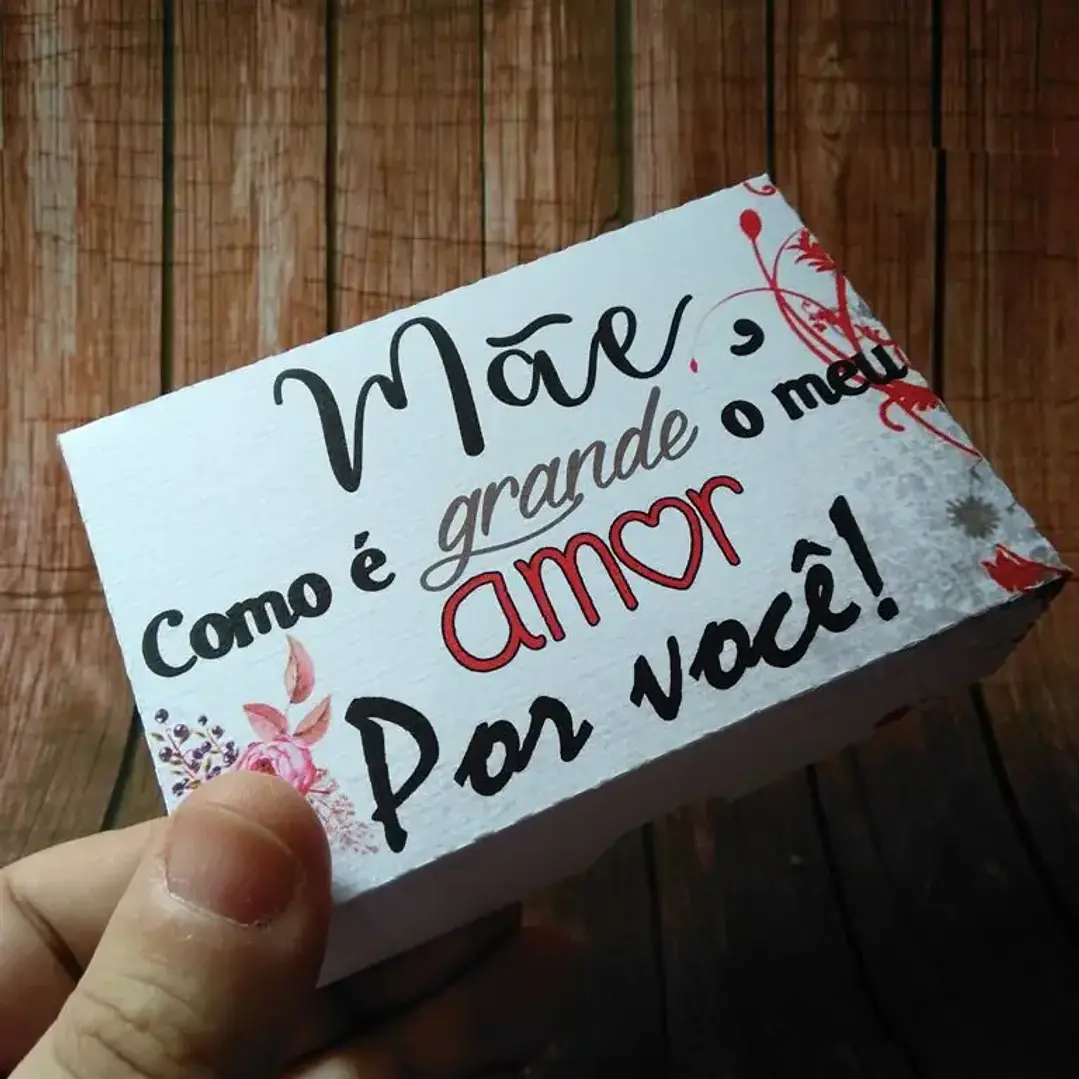 Mãe,
Como é grande o meu
amor
Por você!